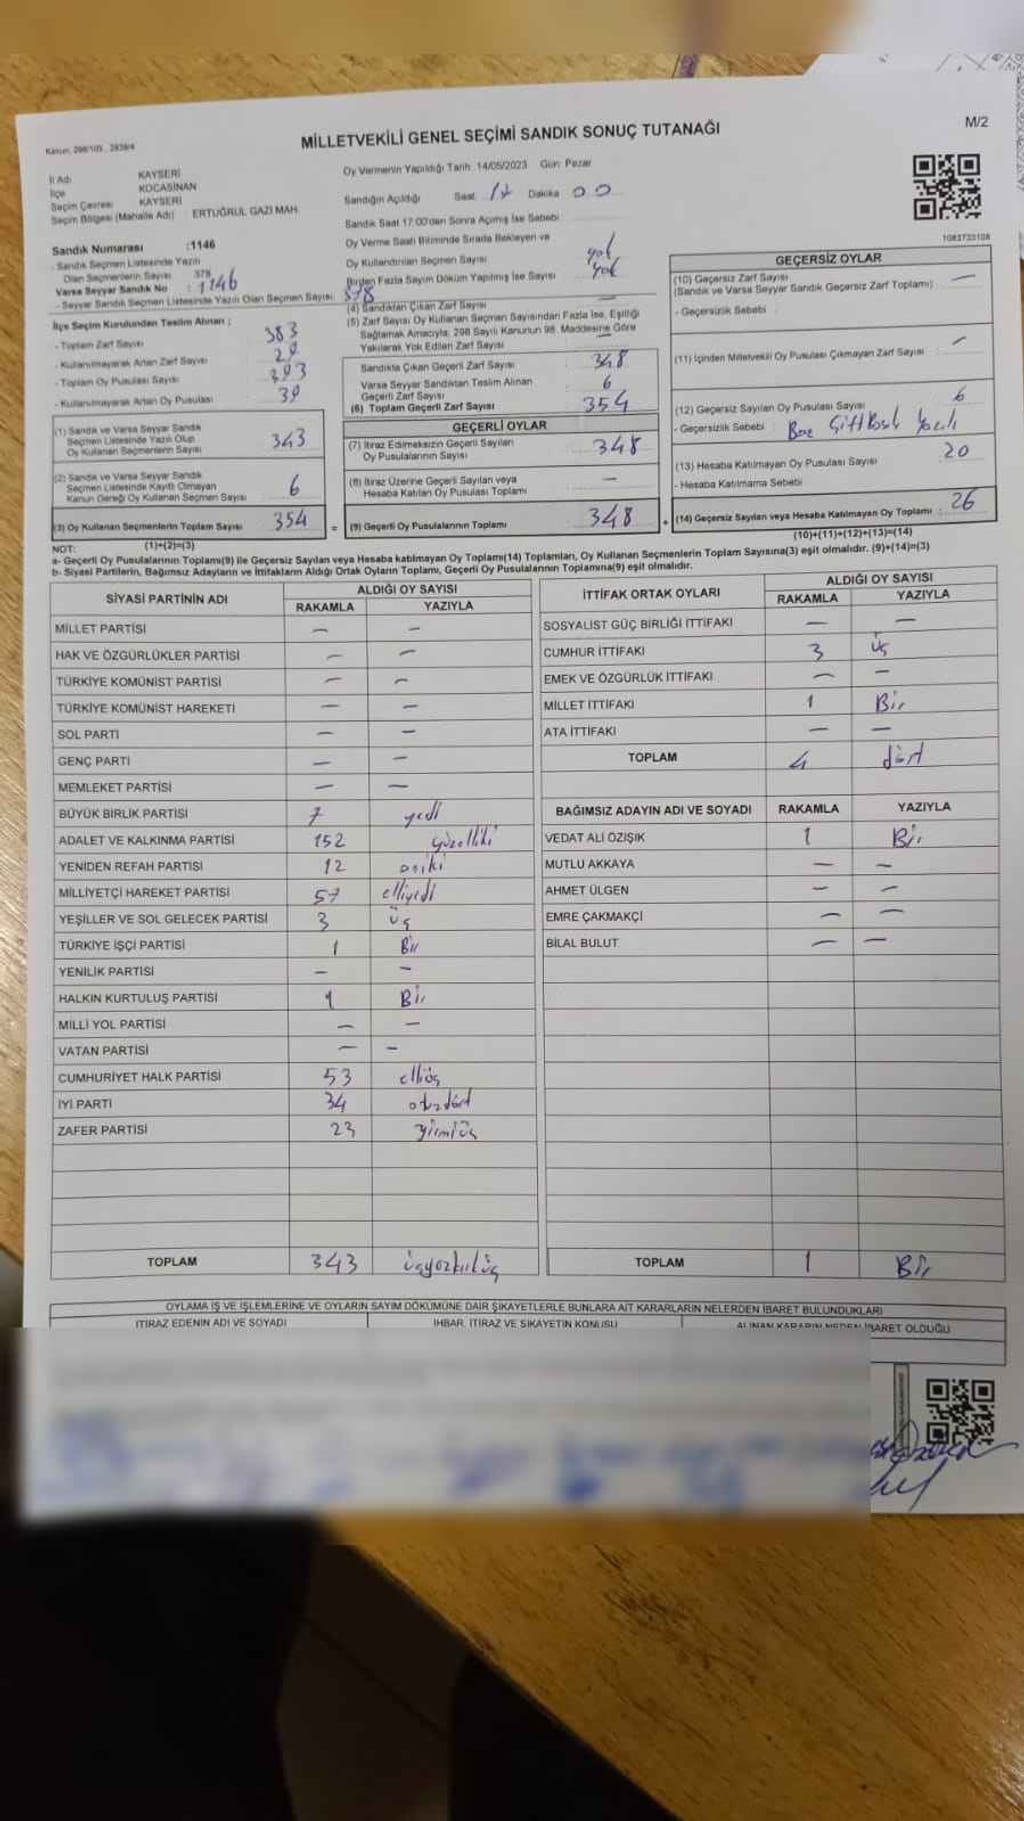 MİLLETVEKİLİ GENEL SEÇİMİ SANDIK SONUÇ TUTANAĞI
M/2
İl Adı KAYSERİ
İlçe KOCASİNAN
Seçim Çevresi KAYSERİ
Seçim Bölgesi (Mahalle Adı) ERTUĞRUL GAZİ MAH.
Sandık Numarası :1146
- Sandık Seçmen Listesinde Yazılı
Olan Seçmenlerin Sayısı 378
Varsa Seyyar Sandık No : 1146
- Seyyar Sandık Seçmen Listesinde Yazılı Olan Seçmen Sayısı 378
Oy Vermenin Yapıldığı Tarih 14/05/2023 Gün: Pazar
Sandığın Açıldığı Saat 17 Dakika 00
Sandık Saat 17:00'dan Sonra Açımış İse Sebebi
Oy Verme Saati Bitiminde Sırada Bekleyen ve
Oy Kullandırılan Seçmen Sayısı yok
Birden Fazla Sayım Döküm Yapılmış İse Sayısı yok
(4) Sandıktan Çıkan Zarf Sayısı —
(5) Zarf Sayısı Oy Kullanan Seçmen Sayısından Fazla İse, Eşitliği
Sağlamak Amacıyla; 298 Sayılı Kanunun 98. Maddesine Göre
Yakılarak Yok Edilen Zarf Sayısı —
İlçe Seçim Kurulundan Teslim Alınan ;
- Toplam Zarf Sayısı 383
- Kullanılmayarak Artan Zarf Sayısı
- Toplam Oy Pusulası Sayısı
- Kullanılmayarak Artan Oy Pusulası 39
(1) Sandık ve Varsa Seyyar Sandık
Seçmen Listesinde Yazılı Olup
Oy Kullanan Seçmenlerin Sayısı 343
(2) Sandık ve Varsa Seyyar Sandık
Seçmen Listesinde Kayıtlı Olmayan
Kanun Gereği Oy Kullanan Seçmen Sayısı 6
(3) Oy Kullanan Seçmenlerin Toplam Sayısı 354
(1)+(2)=(3)
Sandıkta Çıkan Geçerli Zarf Sayısı 348
Varsa Seyyar Sandıktan Teslim Alınan
Geçerli Zarf Sayısı 6
(6) Toplam Geçerli Zarf Sayısı 354
GEÇERLİ OYLAR
(7) İtiraz Edilmeksizin Geçerli Sayılan
Oy Pusulalarının Sayısı 348
(8) İtiraz Üzerine Geçerli Sayılan veya
Hesaba Katılan Oy Pusulası Toplamı —
= (9) Geçerli Oy Pusulalarının Toplamı 348 +
1083733108
GEÇERSİZ OYLAR
(10) Geçersiz Zarf Sayısı —
(Sandık ve Varsa Seyyar Sandık Geçersiz Zarf Toplamı)
- Geçersizlik Sebebi
(11) İçinden Milletvekili Oy Pusulası Çıkmayan Zarf Sayısı —
(12) Geçersiz Sayılan Oy Pusulası Sayısı 6
- Geçersizlik Sebebi
(13) Hesaba Katılmayan Oy Pusulası Sayısı 20
- Hesaba Katılmama Sebebi
(14) Geçersiz Sayılan veya Hesaba Katılmayan Oy Toplamı 26
(10)+(11)+(12)+(13)=(14)
NOT:
a- Geçerli Oy Pusulalarının Toplamı(9) ile Geçersiz Sayılan veya Hesaba katılmayan Oy Toplamı(14) Toplamları, Oy Kullanan Seçmenlerin Toplam Sayısına(3) eşit olmalıdır. (9)+(14)=(3)
b- Siyasi Partilerin, Bağımsız Adayların ve İttifakların Aldığı Ortak Oyların Toplamı, Geçerli Oy Pusulalarının Toplamına(9) eşit olmalıdır.
SİYASİ PARTİNİN ADI ALDIĞI OY SAYISI
RAKAMLA YAZIYLA
MİLLET PARTİSİ — —
HAK VE ÖZGÜRLÜKLER PARTİSİ — —
TÜRKİYE KOMÜNİST PARTİSİ — —
TÜRKİYE KOMÜNİST HAREKETİ — —
SOL PARTİ — —
GENÇ PARTİ — —
MEMLEKET PARTİSİ — —
BÜYÜK BİRLİK PARTİSİ 7 yedi
ADALET VE KALKINMA PARTİSİ 152 yüzelliiki
YENİDEN REFAH PARTİSİ 12 oniki
MİLLİYETÇİ HAREKET PARTİSİ 57 elliyedi
YEŞİLLER VE SOL GELECEK PARTİSİ 3 üç
TÜRKİYE İŞÇİ PARTİSİ 1 Bir
YENİLİK PARTİSİ — —
HALKIN KURTULUŞ PARTİSİ 1 Bir
MİLLİ YOL PARTİSİ — —
VATAN PARTİSİ — —
CUMHURİYET HALK PARTİSİ 53 elliüç
İYİ PARTİ 34 otuzdört
ZAFER PARTİSİ 23 yirmiüç
TOPLAM 343 üçyüzkırküç
İTTİFAK ORTAK OYLARI ALDIĞI OY SAYISI
RAKAMLA YAZIYLA
SOSYALİST GÜÇ BİRLİĞİ İTTİFAKI — —
CUMHUR İTTİFAKI 3 üç
EMEK VE ÖZGÜRLÜK İTTİFAKI — —
MİLLET İTTİFAKI 1 Bir
ATA İTTİFAKI — —
TOPLAM 4 dört
BAĞIMSIZ ADAYIN ADI VE SOYADI RAKAMLA YAZIYLA
VEDAT ALİ ÖZIŞIK 1 Bir
MUTLU AKKAYA — —
AHMET ÜLGEN — —
EMRE ÇAKMAKÇI — —
BİLAL BULUT — —
TOPLAM 1 Bir
OYLAMA İŞ VE İŞLEMLERİNE VE OYLARIN SAYIM DÖKÜMÜNE DAİR ŞİKAYETLERLE BUNLARA AİT KARARLARIN NELERDEN İBARET BULUNDUKLARI
İTİRAZ EDENİN ADI VE SOYADI İHBAR, İTİRAZ VE ŞİKAYETİN KONUSU ALINAN KARARIN NEDEN İBARET OLDUĞU